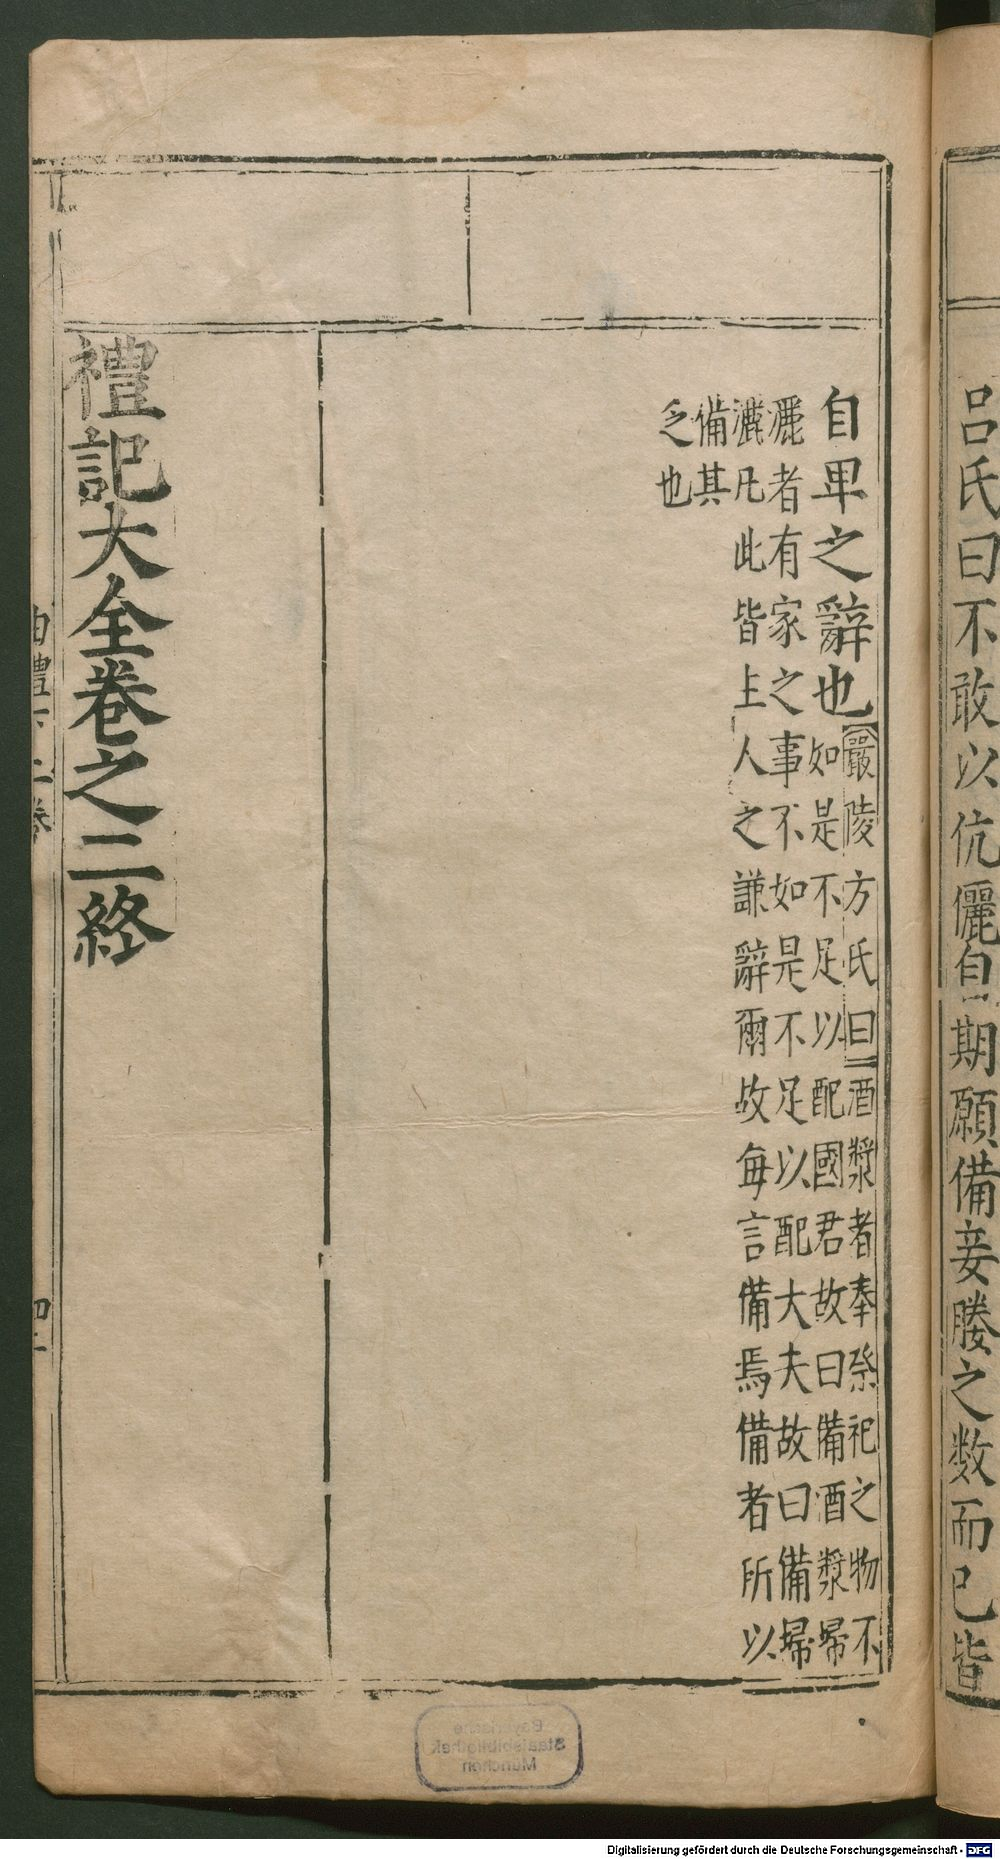 呂氏曰不敢以伉儷自期願備妾媵之數而已皆
自卑之辭也嚴陵方氏曰酒漿者奉祭祀之物不
如是不足以配國君故曰備酒漿埽
灑者有家之事不如是不足以配大夫故曰備埽
灑凡此皆上人之謙辭爾故每言備焉備者所以
備其
乏也
禮記大全卷之二終
曲禮下 二卷
Bayerische
Staatsbibliothek
München
Digitalisierung gefördert durch die Deutsche Forschungsgemeinschaft - DFG